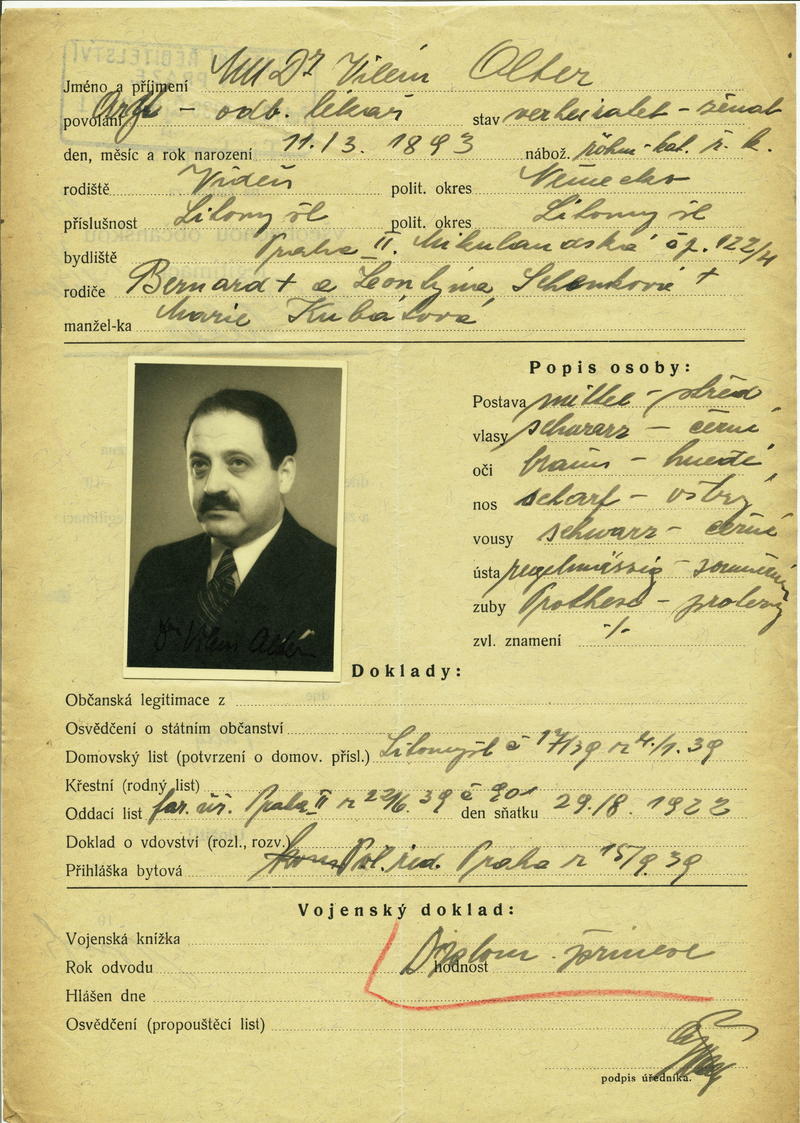 Jméno a příjmení MUDr Vilém Alter
povolání Arzt – odb. lékař stav verheiratet – ženat
den, měsíc a rok narození 11./3. 1893 nábož. röhm-kat. ř. k.
rodiště Vídeň polit. okres Německo
příslušnost Litomyšl polit. okres Litomyšl
bydliště Praha II. Mikulandská čp. 122/4
rodiče Bernard + a Leontyna Schenková +
manžel-ka Marie Kubátová
Popis osoby:
Postava mittel – střed
vlasy schwarz – černé
oči braun – hnědé
nos scharf – ostrý
vousy schwarz – černé
ústa regelmässig – souměrná
zuby Prothese –
zvl. znamení ·/·
Dr Vilém Alter
Doklady:
Občanská legitimace z
Osvědčení o státním občanství
Domovský list (potvrzení o domov. přísl.) Litomyšl č 17/39 z 4./1. 39
Křestní (rodný list)
Oddací list far. úř. Praha II z 22/6. 39 č 901 den sňatku 29./8. 1922
Doklad o vdovství (rozl., rozv.)
Přihláška bytová Pol. řed. Praha z 15/9 39
Vojenský doklad:
Vojenská knížka
Rok odvodu hodnost Diplom přinese
Hlášen dne
Osvědčení (propouštěcí list)
podpis úředníka.